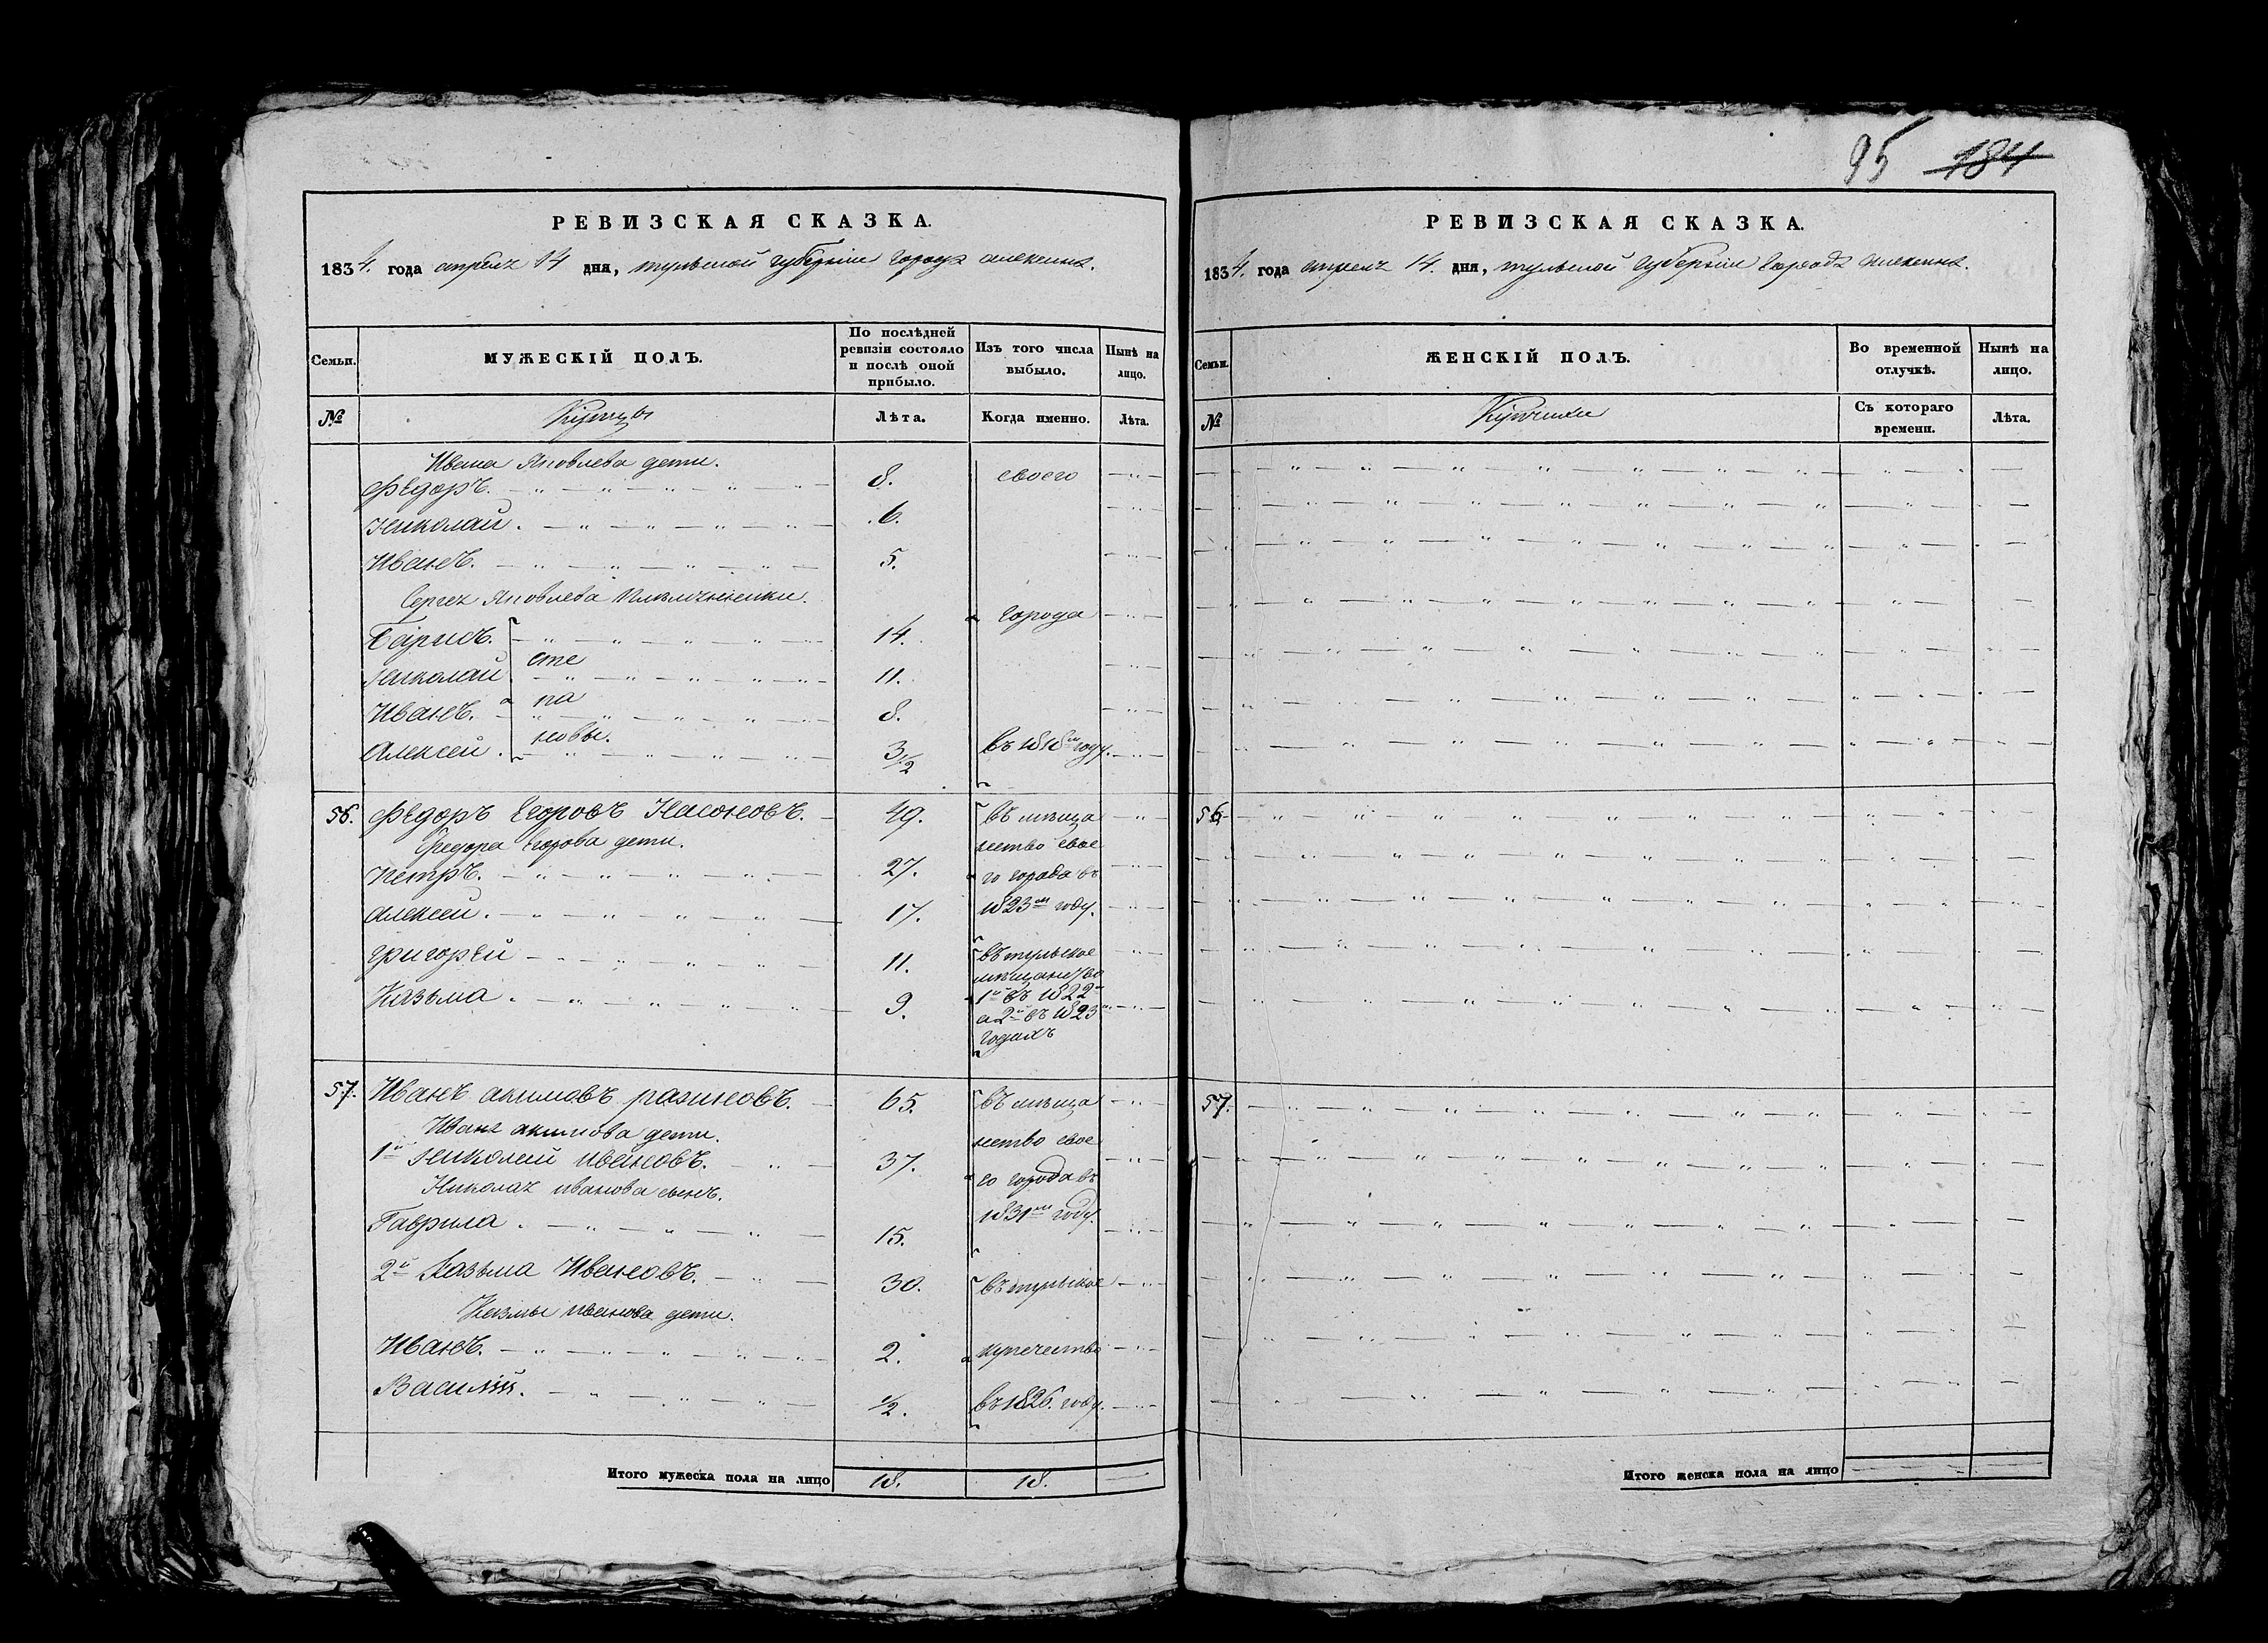 95 184
РЕВИЗСКАЯ СКАЗКА.
1834. года апреля 14 дня, тульской губернiи города алексина.
Семьи.
МУЖЕСКІЙ ПОЛЪ.
По послѣдней ревизіи состояло и послѣ оной прибыло.
Изъ того числа выбыло.
Нынѣ на лицо.
№
Купцы
Лѣта.
Когда именно.
Лѣта.
Ивана Яковлева дети.
Федоръ. 8. своего
Николай. 6.
Иванъ. 5.
Сергея Яковлева племянники.
города
Борисъ. 14.
Николай сте 11.
Иванъ. па 8.
Алексей. новы. 3 1/2 въ 1818м году.
56. Федоръ Егоровъ Насоновъ. 49. въ меща
Федора Егорова дети. нство свое
Петръ. 27. го города въ
Алексей. 17. 1823м году.
Григорей 11. въ тульское
мещанство
Казьма. 9. 1й въ 1822м
а 2й въ 1823м
годахъ
57. Иванъ акимовъ разиновъ. 65. въ меща
Ивана акимова дети. нство свое
1й Николай ивановъ. 37. го города въ
Николая иванова сынъ. 1831м году.
Гаврила. 15.
2й Казьма Ивановъ. 30. въ тульское
Казмы иванова дети.
Иванъ. 2. купечество
Василий. 1/2. въ 1826. году.
Итого мужеска пола на лицо 18. 18.
РЕВИЗСКАЯ СКАЗКА.
1834. года апреля 14. дня, тульской губернiи города алексина.
Семьи.
ЖЕНСКІЙ ПОЛЪ.
Во временной отлучкѣ.
Нынѣ на лицо.
№
Купчихи
Съ котораго времени.
Лѣта.
56
57.
Итого женска пола на лицо